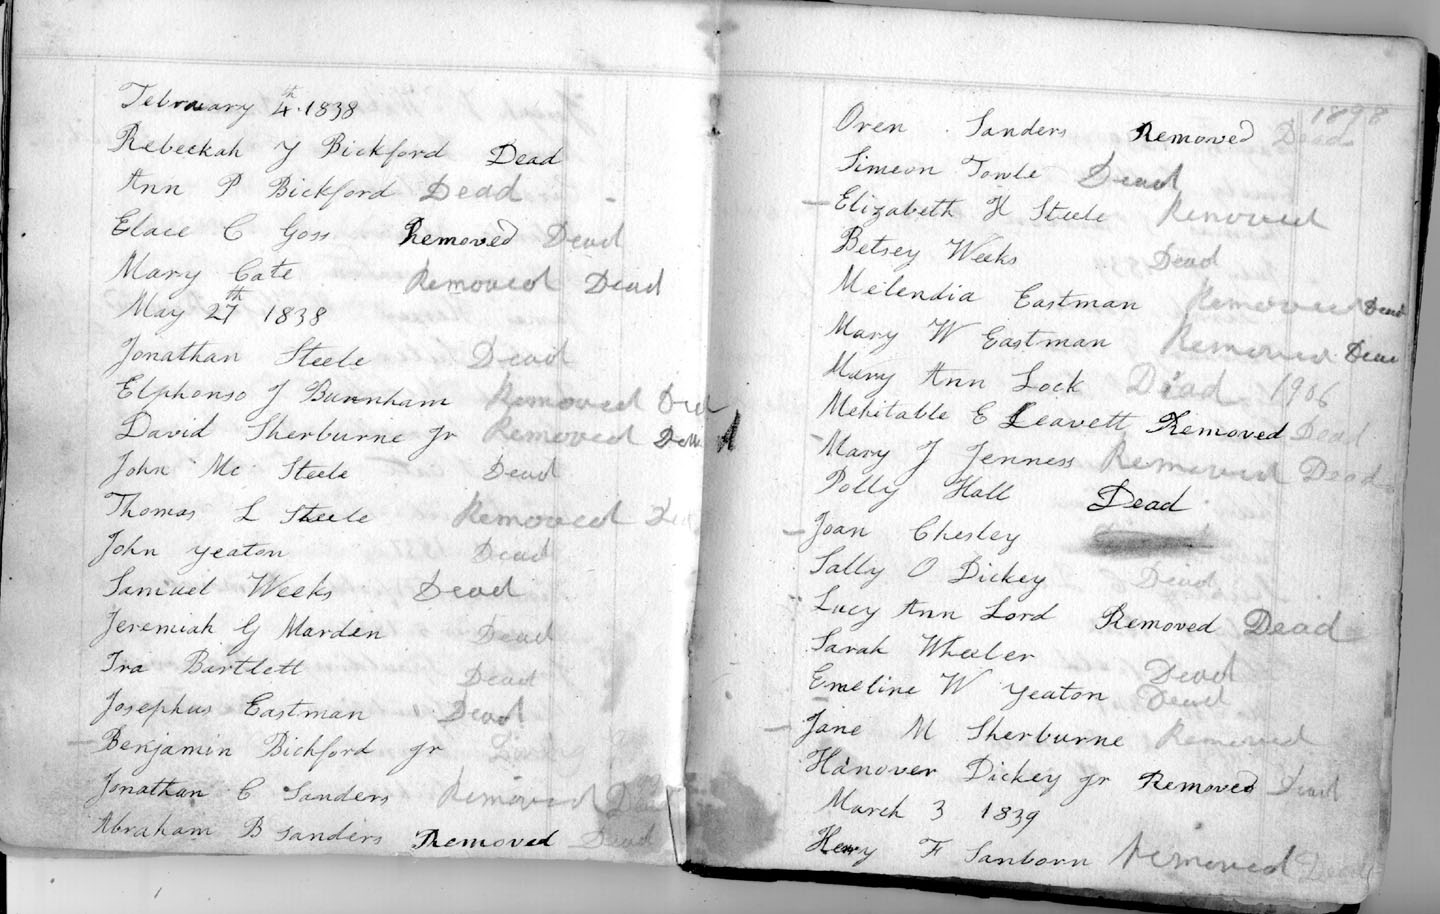 February 4th 1838
Rebeckah Y Bickford Dead
Ann P Bickford Dead
Elace C Goss Removed Dead
Mary Cate Removed Dead
May 27th 1838
Jonathan Steele Dead
Elphonso J Burnham Removed Dead
David Sherburne Jr Removed Dead
John Mc Steele Dead
Thomas L Steele Removed
John Yeaton Dead
Samuel Weeks Dead
Jeremiah G Marden Dead
Ira Bartlett Dead
Josephus Eastman Dead
Benjamin Bickford Jr
Jonathan C Sanders Removed Dead
Abraham B Sanders Removed Dead
1898
Oren Sanders Removed Dead
Simeon Towle Dead
Elizabeth H Steele Removed
Betsey Weeks Dead
Melendia Eastman Removed Dead
Mary W Eastman Removed Dead
Mary Ann Lock Dead 1906
Mehitable E Leavett Removed Dead
Mary J Jenness Removed Dead
Polly Hall Dead
Joan Chesley
Sally O Dickey Dead
Lucy Ann Lord Removed Dead
Sarah Wheeler Dead
Emeline W Yeaton Dead
Jane M Sherburne Removed
Hanover Dickey Jr Removed Dead
March 3 1839
Henry F Sanborn Removed Dead